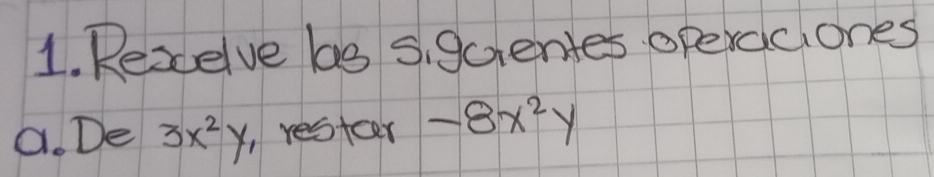 1. Resuelve las siguientes operaciones
a. De 3x²y, restar -8x²y